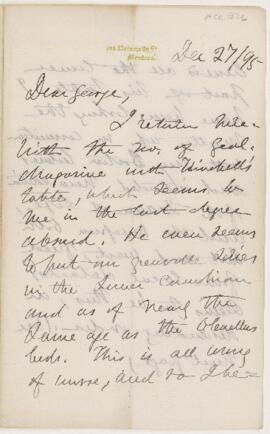 ACC 1526
Dec 27/95
Dear George,
I return here-
with the no. of Geol.
Magazine with Hinchett's
table, which seems to
me in the last degree
absurd. He even seems
to put our Grenville series
in the Lower Cambrian
and as of nearly the
same age as the Olenellus
beds. This is all wrong
of course, and so I be-